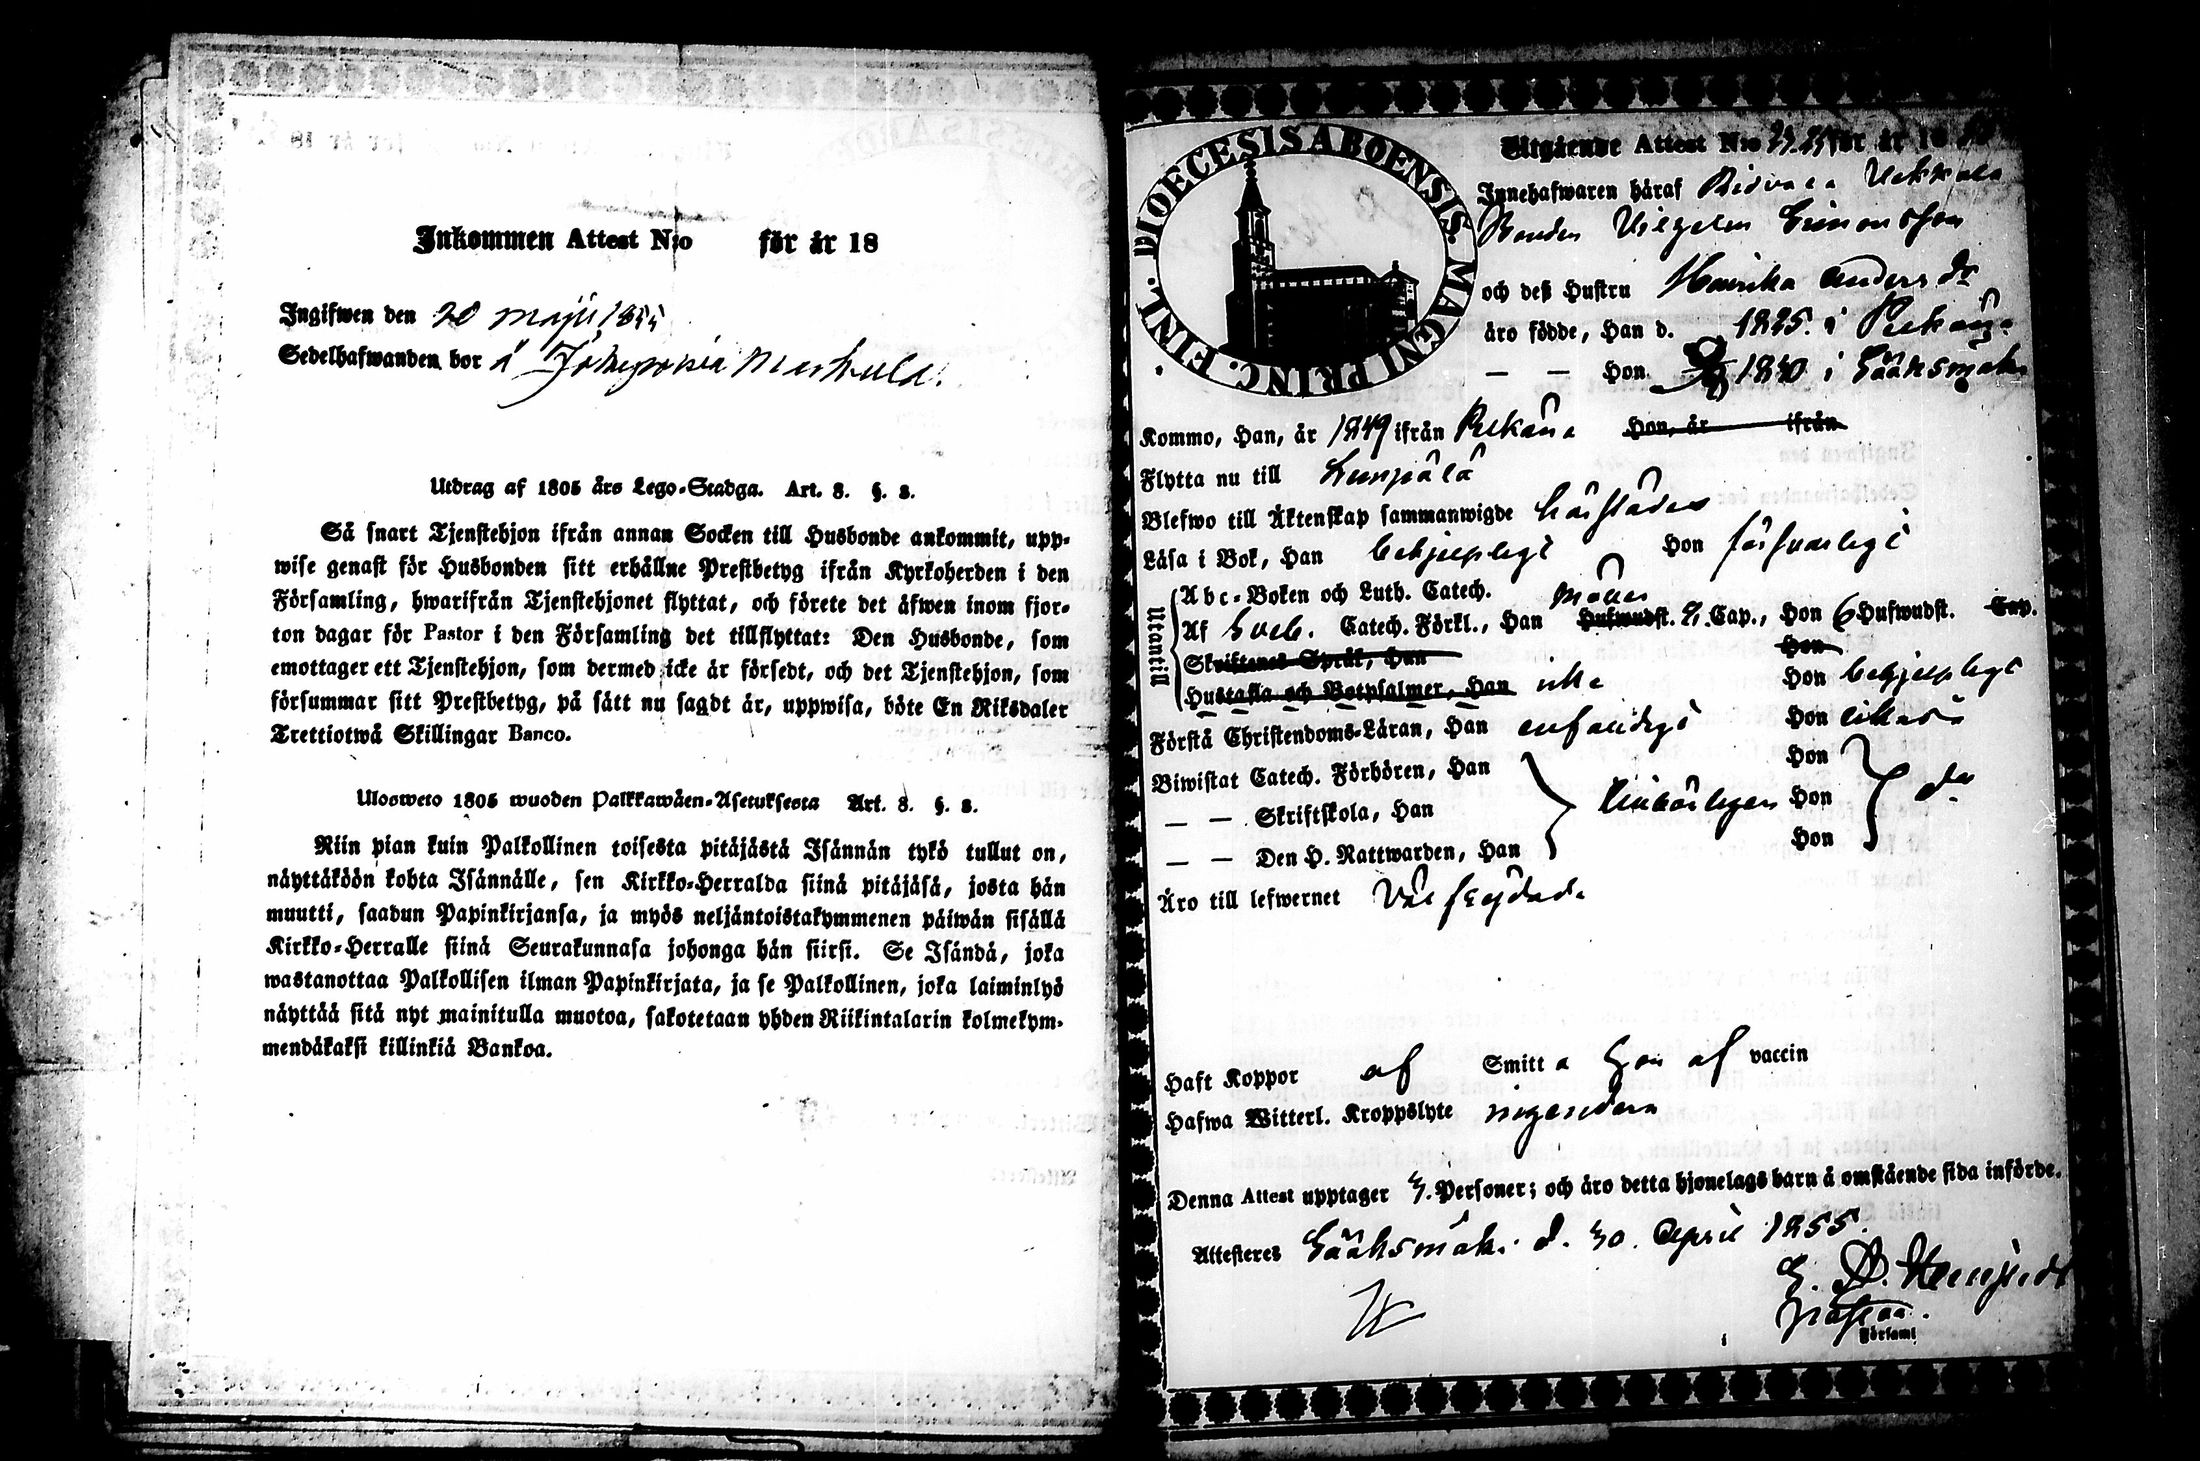 Inkommen Attest N:o för år 18
Ingifwen den 20 Maji 1855
Sedelhafwanden bor å
Utdrag af 1805 års Lego-Stadga. Art. 8. §. 2.
Så snart Tjenstehjon ifrån annan Socken till Husbonde ankommit, upp-
wise genast för Husbonden sitt erhållne Prestbetyg ifrån Kyrkoherden i den
Församling, hwarifrån Tjenstehjonet flyttat, och förete det äfwen inom fjor-
ton dagar för Pastor i den Församling det tillflyttat: Den Husbonde, som
emottager ett Tjenstehjon, som dermed icke är försedt, och det Tjenstehjon, som
försummar sitt Prestbetyg, på sätt nu sagdt är, uppwisa, böte En Riksdaler
Trettiotwå Skillingar Banco.
Ulosweto 1805 wuoden Palkkawäen-Asetuksesta Art. 8. §. 2.
Niin pian kuin Palkollinen toisesta pitäjästä Isännän tykö tullut on,
näyttäköön kohta Isännälle, sen Kirkko-Herralda siinä pitäjäsä, josta hän
muutti, saadun Papinkirjansa, ja myös neljäntoistakymmenen päiwän sisällä
Kirkko-Herralle siinä Seurakunnasa johonga hän siirsi. Se Isändä, joka
wastanottaa Palkollisen ilman Papinkirjata, ja se Palkollinen, joka laiminlyö
näyttää sitä nyt mainitulla muotoa, sakotetaan yhden Riikintalarin kolmekym-
mendäkaksi killinkiä Bankoa.
DIOECESIS ABOENSIS MAGNI PRINC. FINL.
Utgående Attest N:o för år 18
Innehafwaren häraf
Bonden Simonsson
och deß Hustru Henrika Anders dr
äro födde, Han d. 1825. i Pelkäne
— — Hon 1830 i Sääksmäki
Kommo, Han, år 1849 ifrån Pelkäne Hon, år ifrån
Flytta nu till Lempälä
Blefwo till Äktenskap sammanwigde härstädes
Läsa i Bok, Han behjelpligt Hon förswarligt
Utantill
Abc-Boken och Luth. Catech.
Af Sveb. Catech. Förkl., Han Hufwudst. 2. Cap., Hon 6 Hufwudst. Cap.
Skriftenes Språk, Han Hon
Hustafla och Botpsalmer, Han icke Hon behjelpligt
Förstå Christendoms-Läran, Han enfaldigt Hon likaså
Biwistat Catech. Förhören, Han Hon
— — Skriftskola, Han Hon do
— — Den H. Nattwarden, Han Hon
Äro till lefwernet Väl frejdade
Haft Koppor af Smitta Hon af vaccin
Hafwa Witterl. Kroppslyte ingendera
Denna Attest upptager Personer; och äro detta hjonelags barn å omstående sida införde.
Attesteres Sääksmäki d. 30. April 1855.
Församl